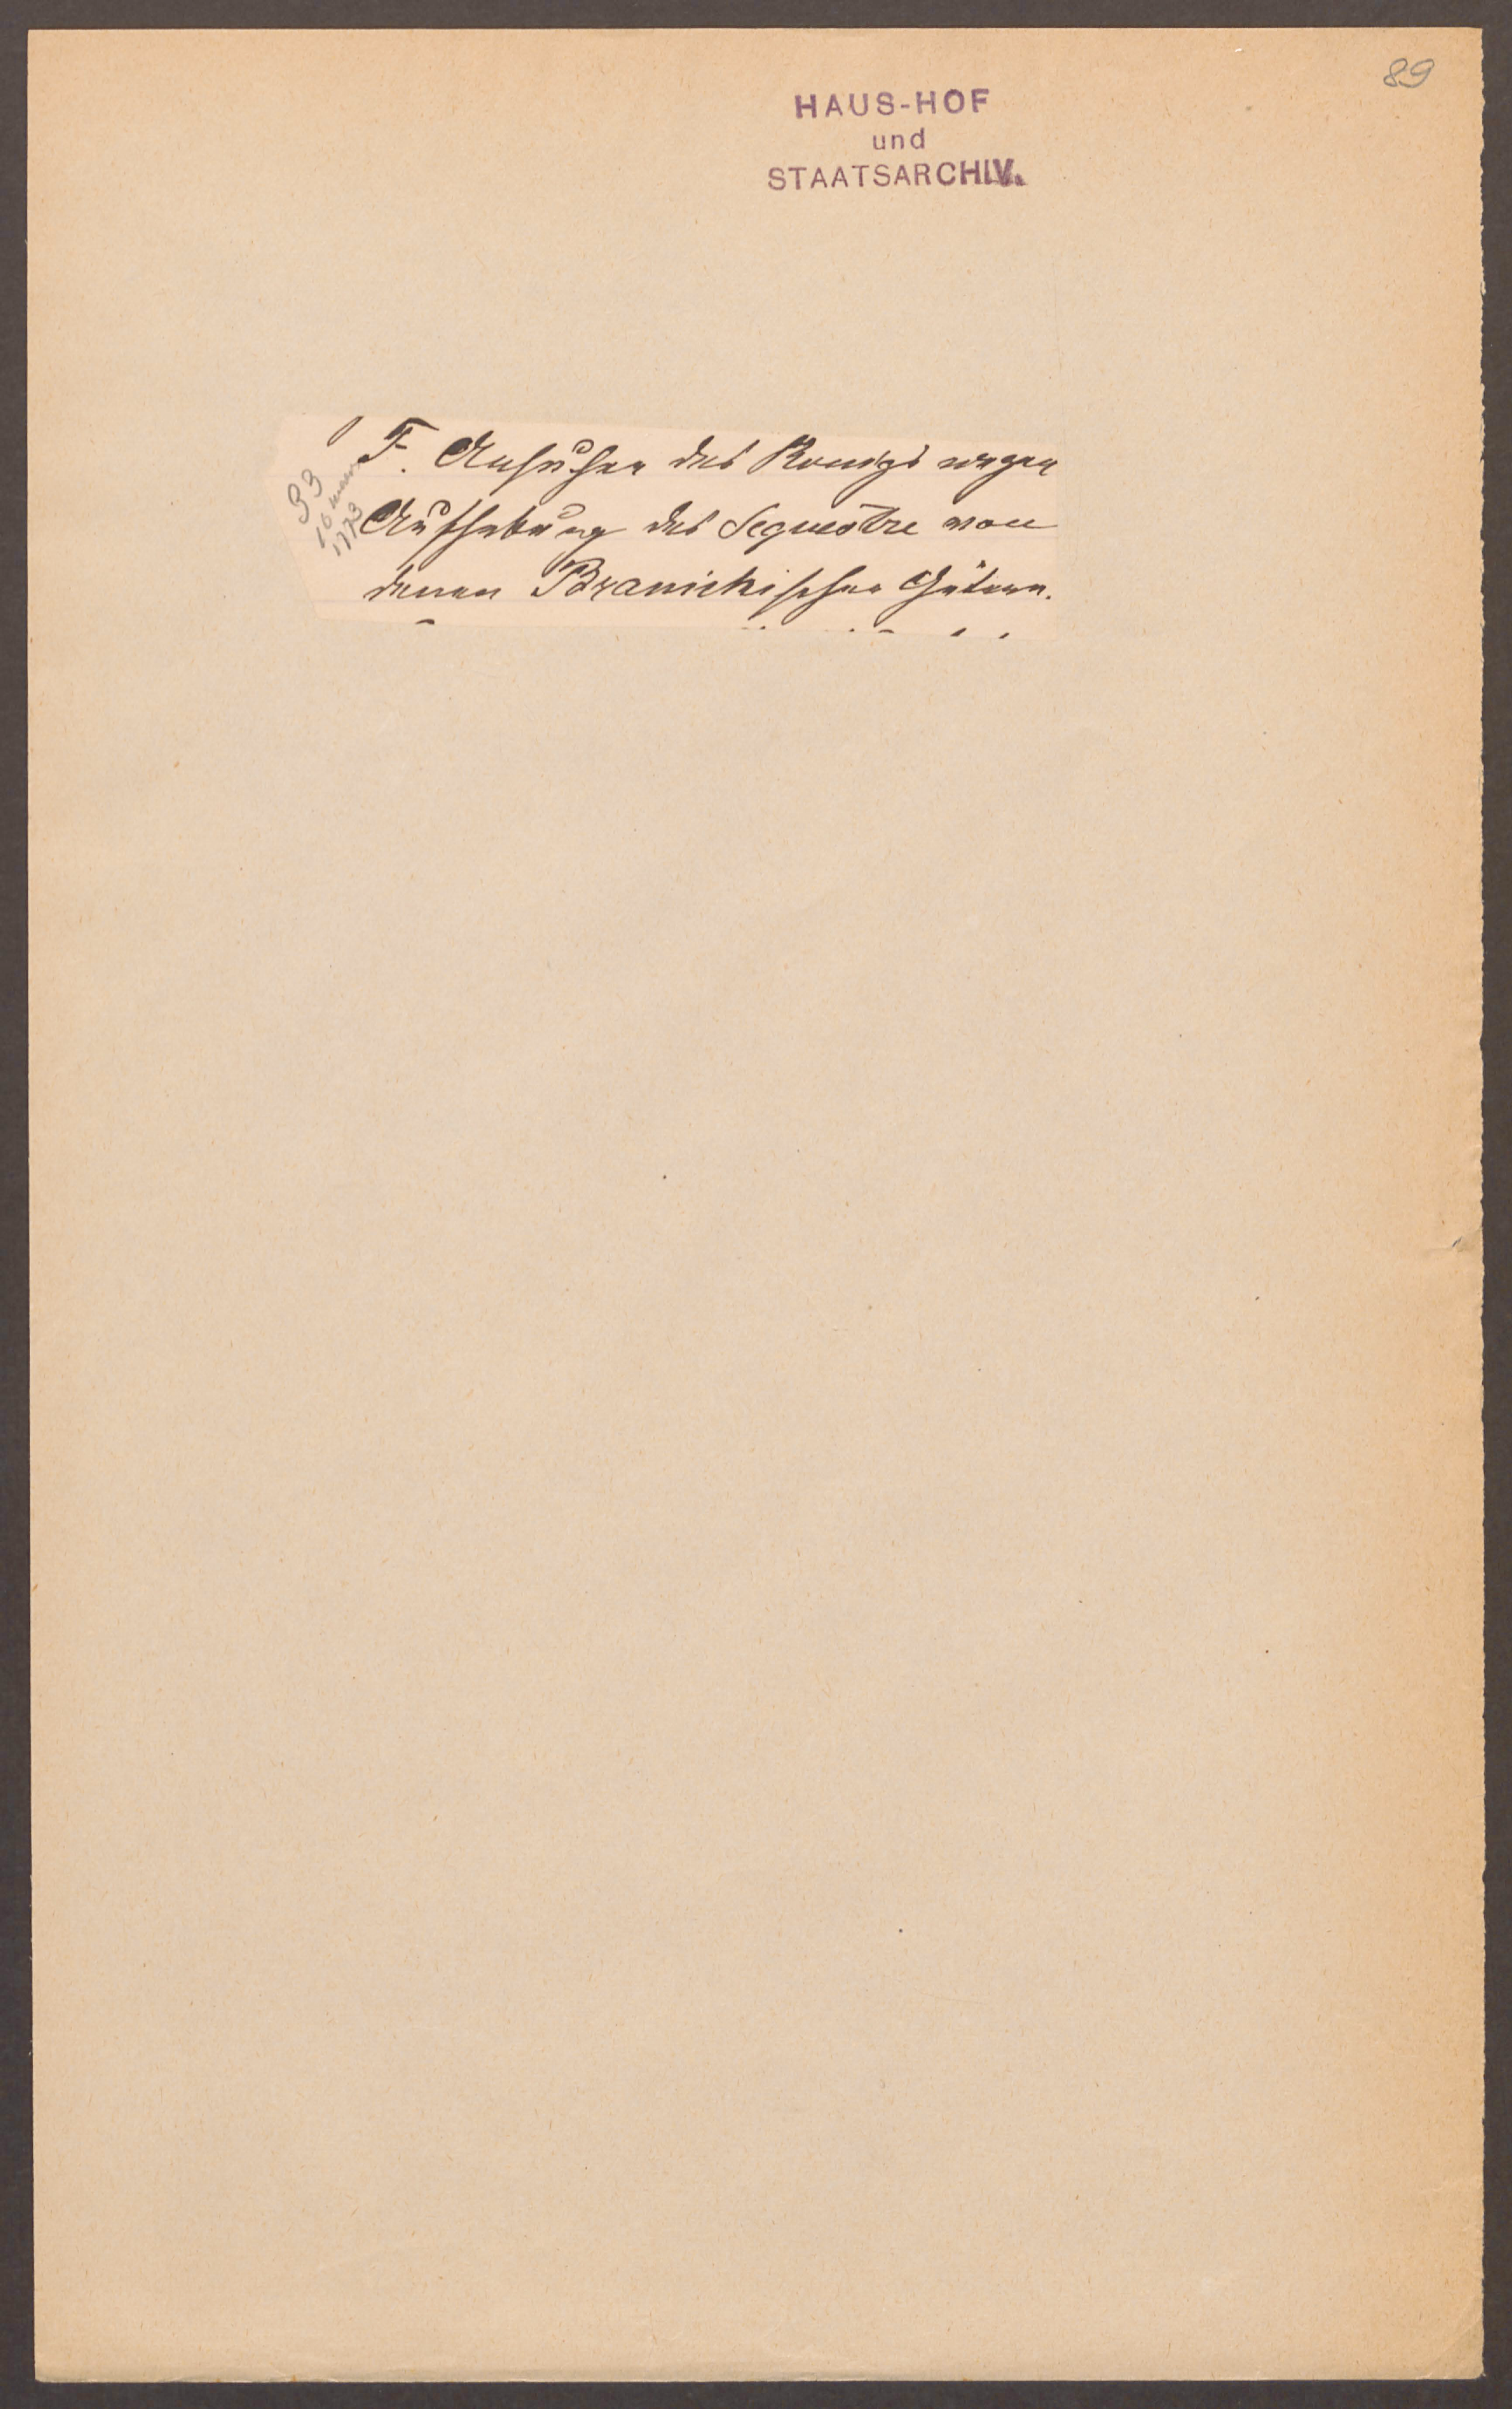 89
HAUS-HOF
und
STAATSARCHIV.
F. Ansuchen des Königs wegen
Aufhebung des Sequestre von
denen Branickischen Gütern.
33
16
1773